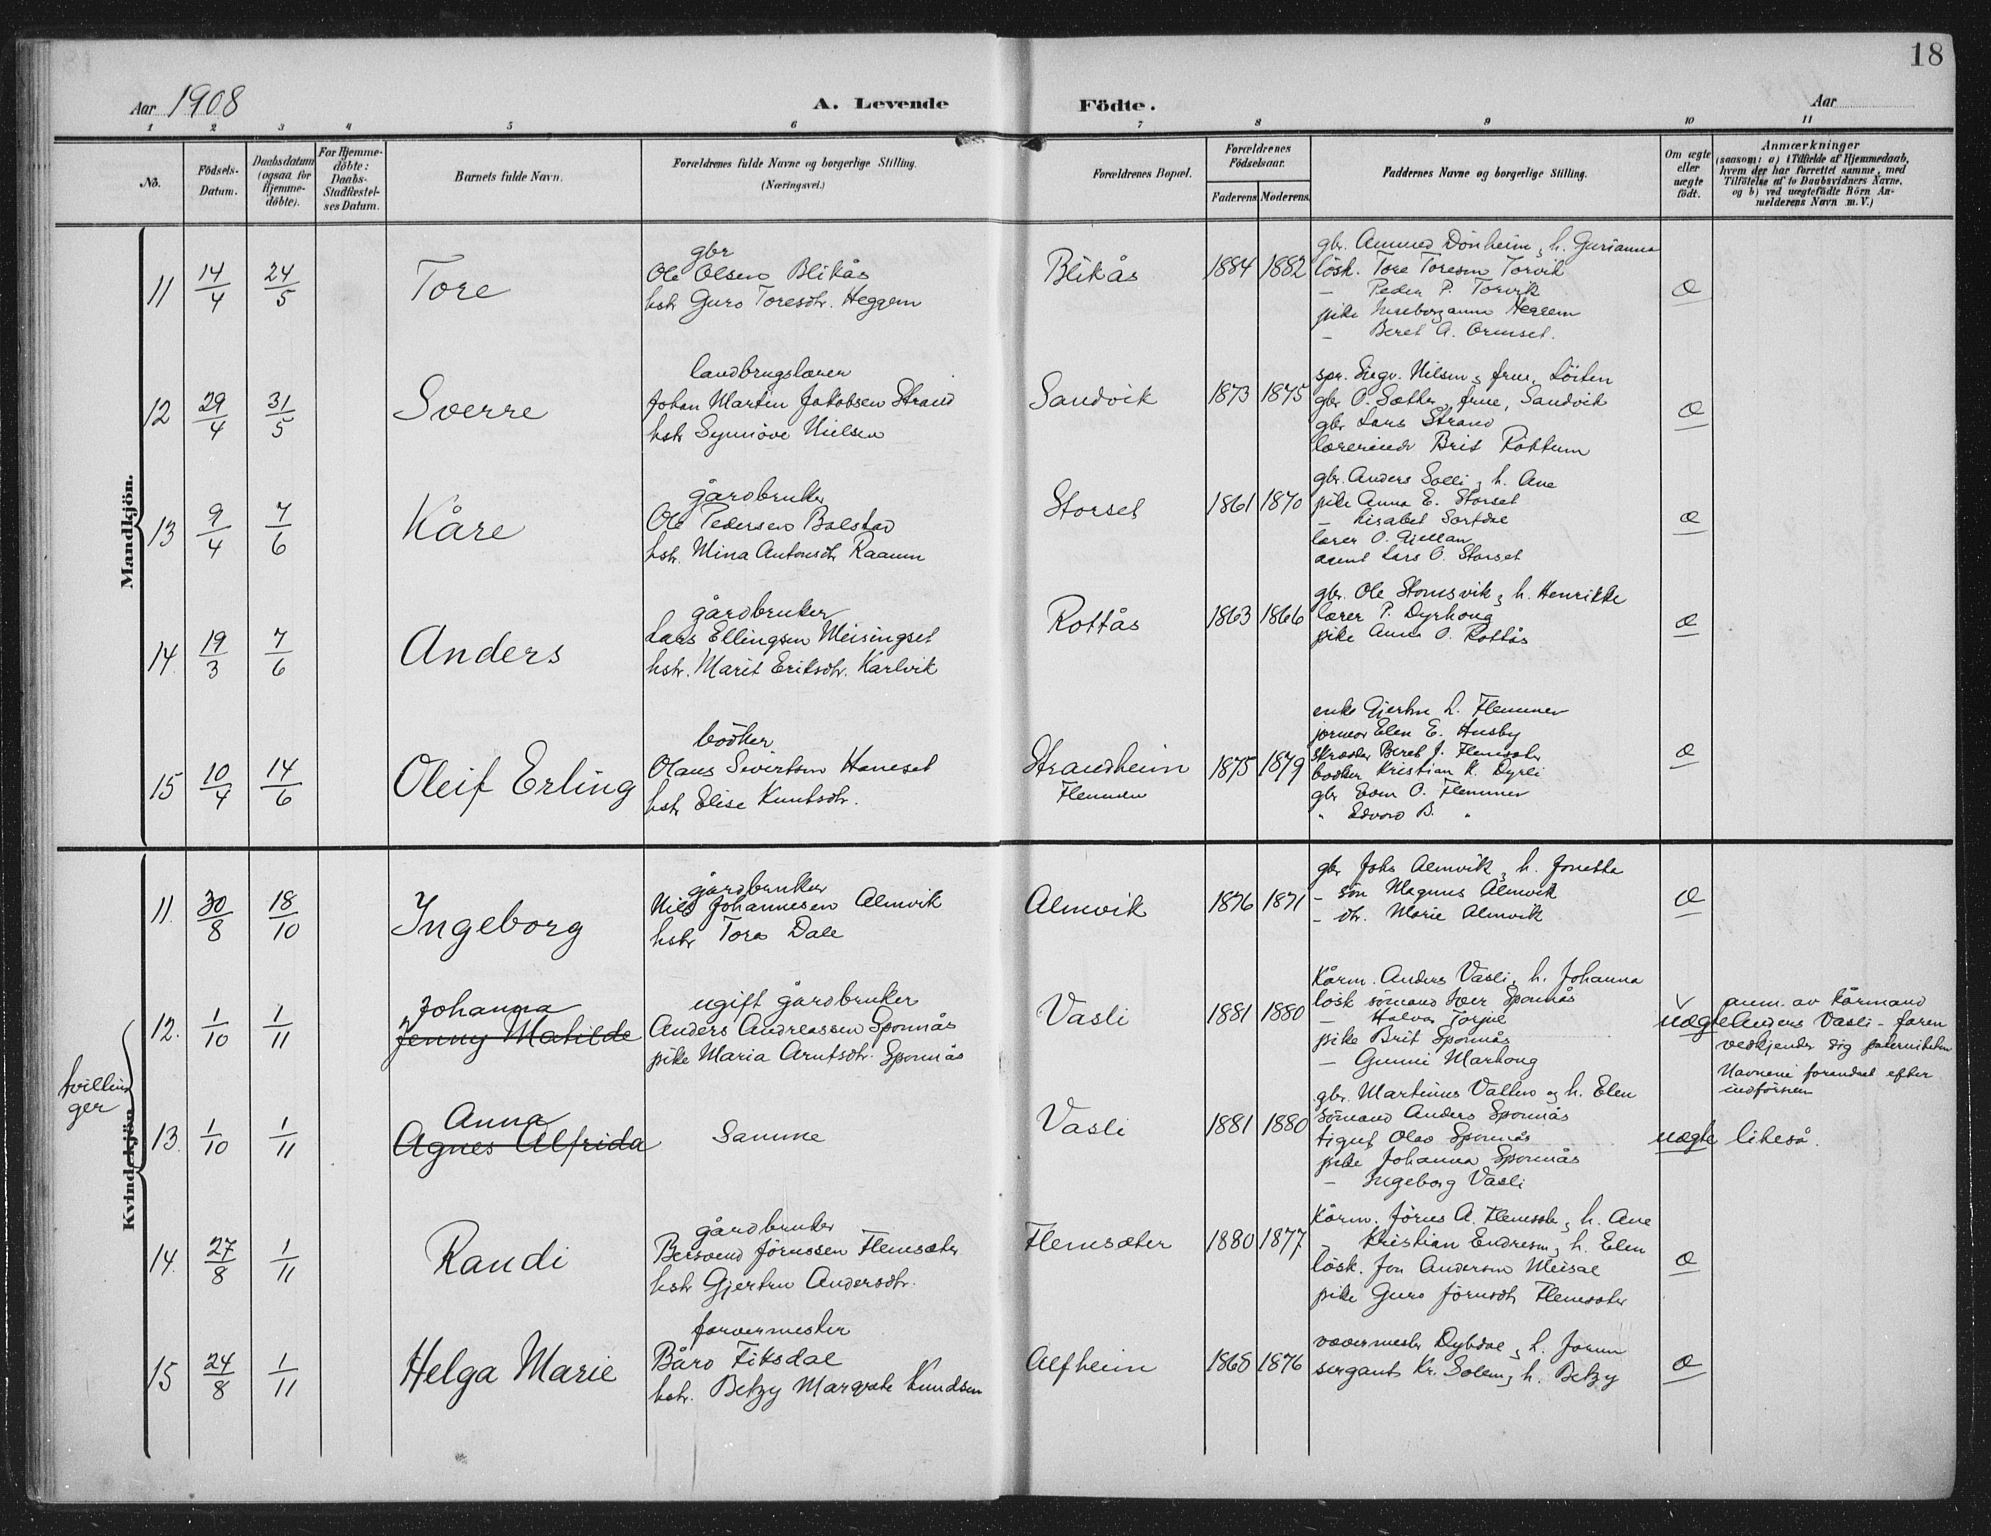 18
Aar 1908 A. Levende Födte. Aar
1 2 3 4 5 6 7 8 9 10 11
No.
Födsels-Datum.
Daabsdatum (ogsaa for Hjemme-döbte).
For Hjemme-döbte: Daabs-Stadfæstel-ses Datum.
Barnets fulde Navn.
Forældrenes fulde Navne og borgerlige Stilling.
(Næringsvei.)
Forældrenes Bopæl.
Forældrenes Födselsaar.
Faderens Moderens.
Faddernes Navne og borgerlige Stilling.
Om ægte eller uægte födt.
Anmærkninger
(saasom: a) i Tilfælde af Hjemmedaab,
hvem der har forrettet samme, med
Tilföielse af to Daabsvidners Navne,
og b) ved uægtefödte Börn An-
melderens Navn m. V.)
Mandkjön.
11 14/4 24/5 Tore
gbr
Ole Olsen Blikås
hstr Guro Toresdtr. Heggem
Blikås 1884 1882
gbr. Ammund Dönheim, h. Gurianna
lösk. Tore Toresen Torvik
— Peder P. Torvik
pike Ingeborganna Heggem
— Beret A. Ormset.
Æ
12 29/4 31/5 Sverre
landbrugslærer
Johan Martin Jakobsen Strand
hstr Synnöve Nielsen
Sandvik 1873 1875
Nilsen, frue, Löiten
gbr O. Sæther, frue, Sandvik
gbr Lars Strand
lærerinde Brit Rottum
Æ
13 9/4 7/6 Kåre
gårdbruker
Ole Pedersen Bolstad
hstr. Mina Antonsdtr Raanm
Storset 1861 1870
gbr. Anders Solli, h. Ane
pike Anna E. Storset
— Lisabet Sortdal
lærer O. Gjellan
agent Lars O. Storset
Æ
14. 19/3 7/6 Anders
gårdbruker
Lars Ellingsen Meisingset
hstr. Marit Eriksdtr. Karlvik
Rottås 1863 1866
gbr. Ole Stomsvik, h. Henrikke
lærer P. Dyrhoug
pike Anne O. Rottås
Æ
15 10/4 14/6 Oleif Erling
bödker
Olaus Sivertsen Haneset
hstr Elise Knutsdtr.
Strandheim
Flemmen
1875 1879
enke Gjertru L. Flemmen
jormor Elen E. Husby
Beret J. Flemsæter
bödker Kristian K. Dyrli
gbr Even O. Flemmen
" Edvard B. "
Æ
Kvindekjön.
11. 30/8 18/10 Ingeborg
gårdbruker
Nils Johannesen Almvik
hstr Tora Dale
Almvik 1876 1871
gbr Johs Almvik, h. Jonetta
— sön Magnus Almvik
— dtr. Marie Almvik
Æ
tvillin-
ger
12. 1/10 1/11
Johanna
Jenny Matilde
ugift gårdbruker
Anders Andreassen Sponnås
pike Maria Arntsdtr. Sponnås
Vasli 1881 1880
Kårm. Anders Vasli, h. Johanna
lösk sömand Iver Sponnås
— Halvor Torjul
pike Brit Sponnås
— Gunni Marhoug
uægte
anm. av kårmand
Anders Vasli - faren
vedkjender sig paterniteten
Navnene forandret efter
indförsen
13. 1/10 1/11
Anna
Agnes Alfrida
Samme
Vasli 1881 1880
gbr. Martinus Valtun og h. Elen
sömand Anders Sponnås
Olav Sponnås
pike Johanna Sponnås
— Ingeborg Vasli
uægte likeså.
14. 27/8 1/11 Randi
gårdbruker
Bersvend Jörnssen Flemsæter
hstr Gjertru Andersdtr.
Flemsæter 1880 1877
Kårm. Jörns A. Flemsæter, h. Ane
— Kristian Endresen, h. Elen
lösk. Jon Andersen Meisal
pike Guro Jörnsdtr Flemsæter
Æ
15 24/8 1/11 Helga Marie
farvermester
Bård Fiksdal
hstr. Betzy Margrete Knudsen
Alfheim 1868 1876
vævermester Dybdal, h. Jorun
sergeant Kr. Solem, h. Betzy
Æ